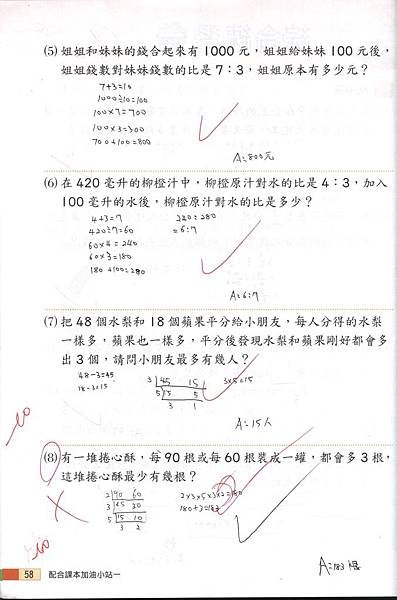 (5) 姐姐和妹妹的錢合起來有1000元，姐姐給妹妹100元後，
姐姐錢數對妹妹錢數的比是7：3，姐姐原本有多少元？
7+3=10
1000÷10=100
100×7=700
100×3=300
700+100=800
A=800元
(6) 在420毫升的柳橙汁中，柳橙原汁對水的比是4：3，加入
100毫升的水後，柳橙原汁對水的比是多少？
4+3=7
420÷7=60
60×4=240
60×3=180
180+100=280
240:280
=6:7
A=6:7
(7) 把48個水梨和18個蘋果平分給小朋友，每人分得的水梨
一樣多，蘋果也一樣多，平分後發現水梨和蘋果剛好都會多
出3個，請問小朋友最多有幾人？
48-3=45
18-3=15
3 45 15
5 15 5
3 1
3×5=15
A=15人
(8) 有一堆捲心酥，每90根或每60根裝成一罐，都會多3根，
這堆捲心酥最少有幾根？
2 90 60
3 45 30
5 15 10
3 2
2×3×5×3×2=180
180+3=183
A=183根
58 配合課本加油小站一